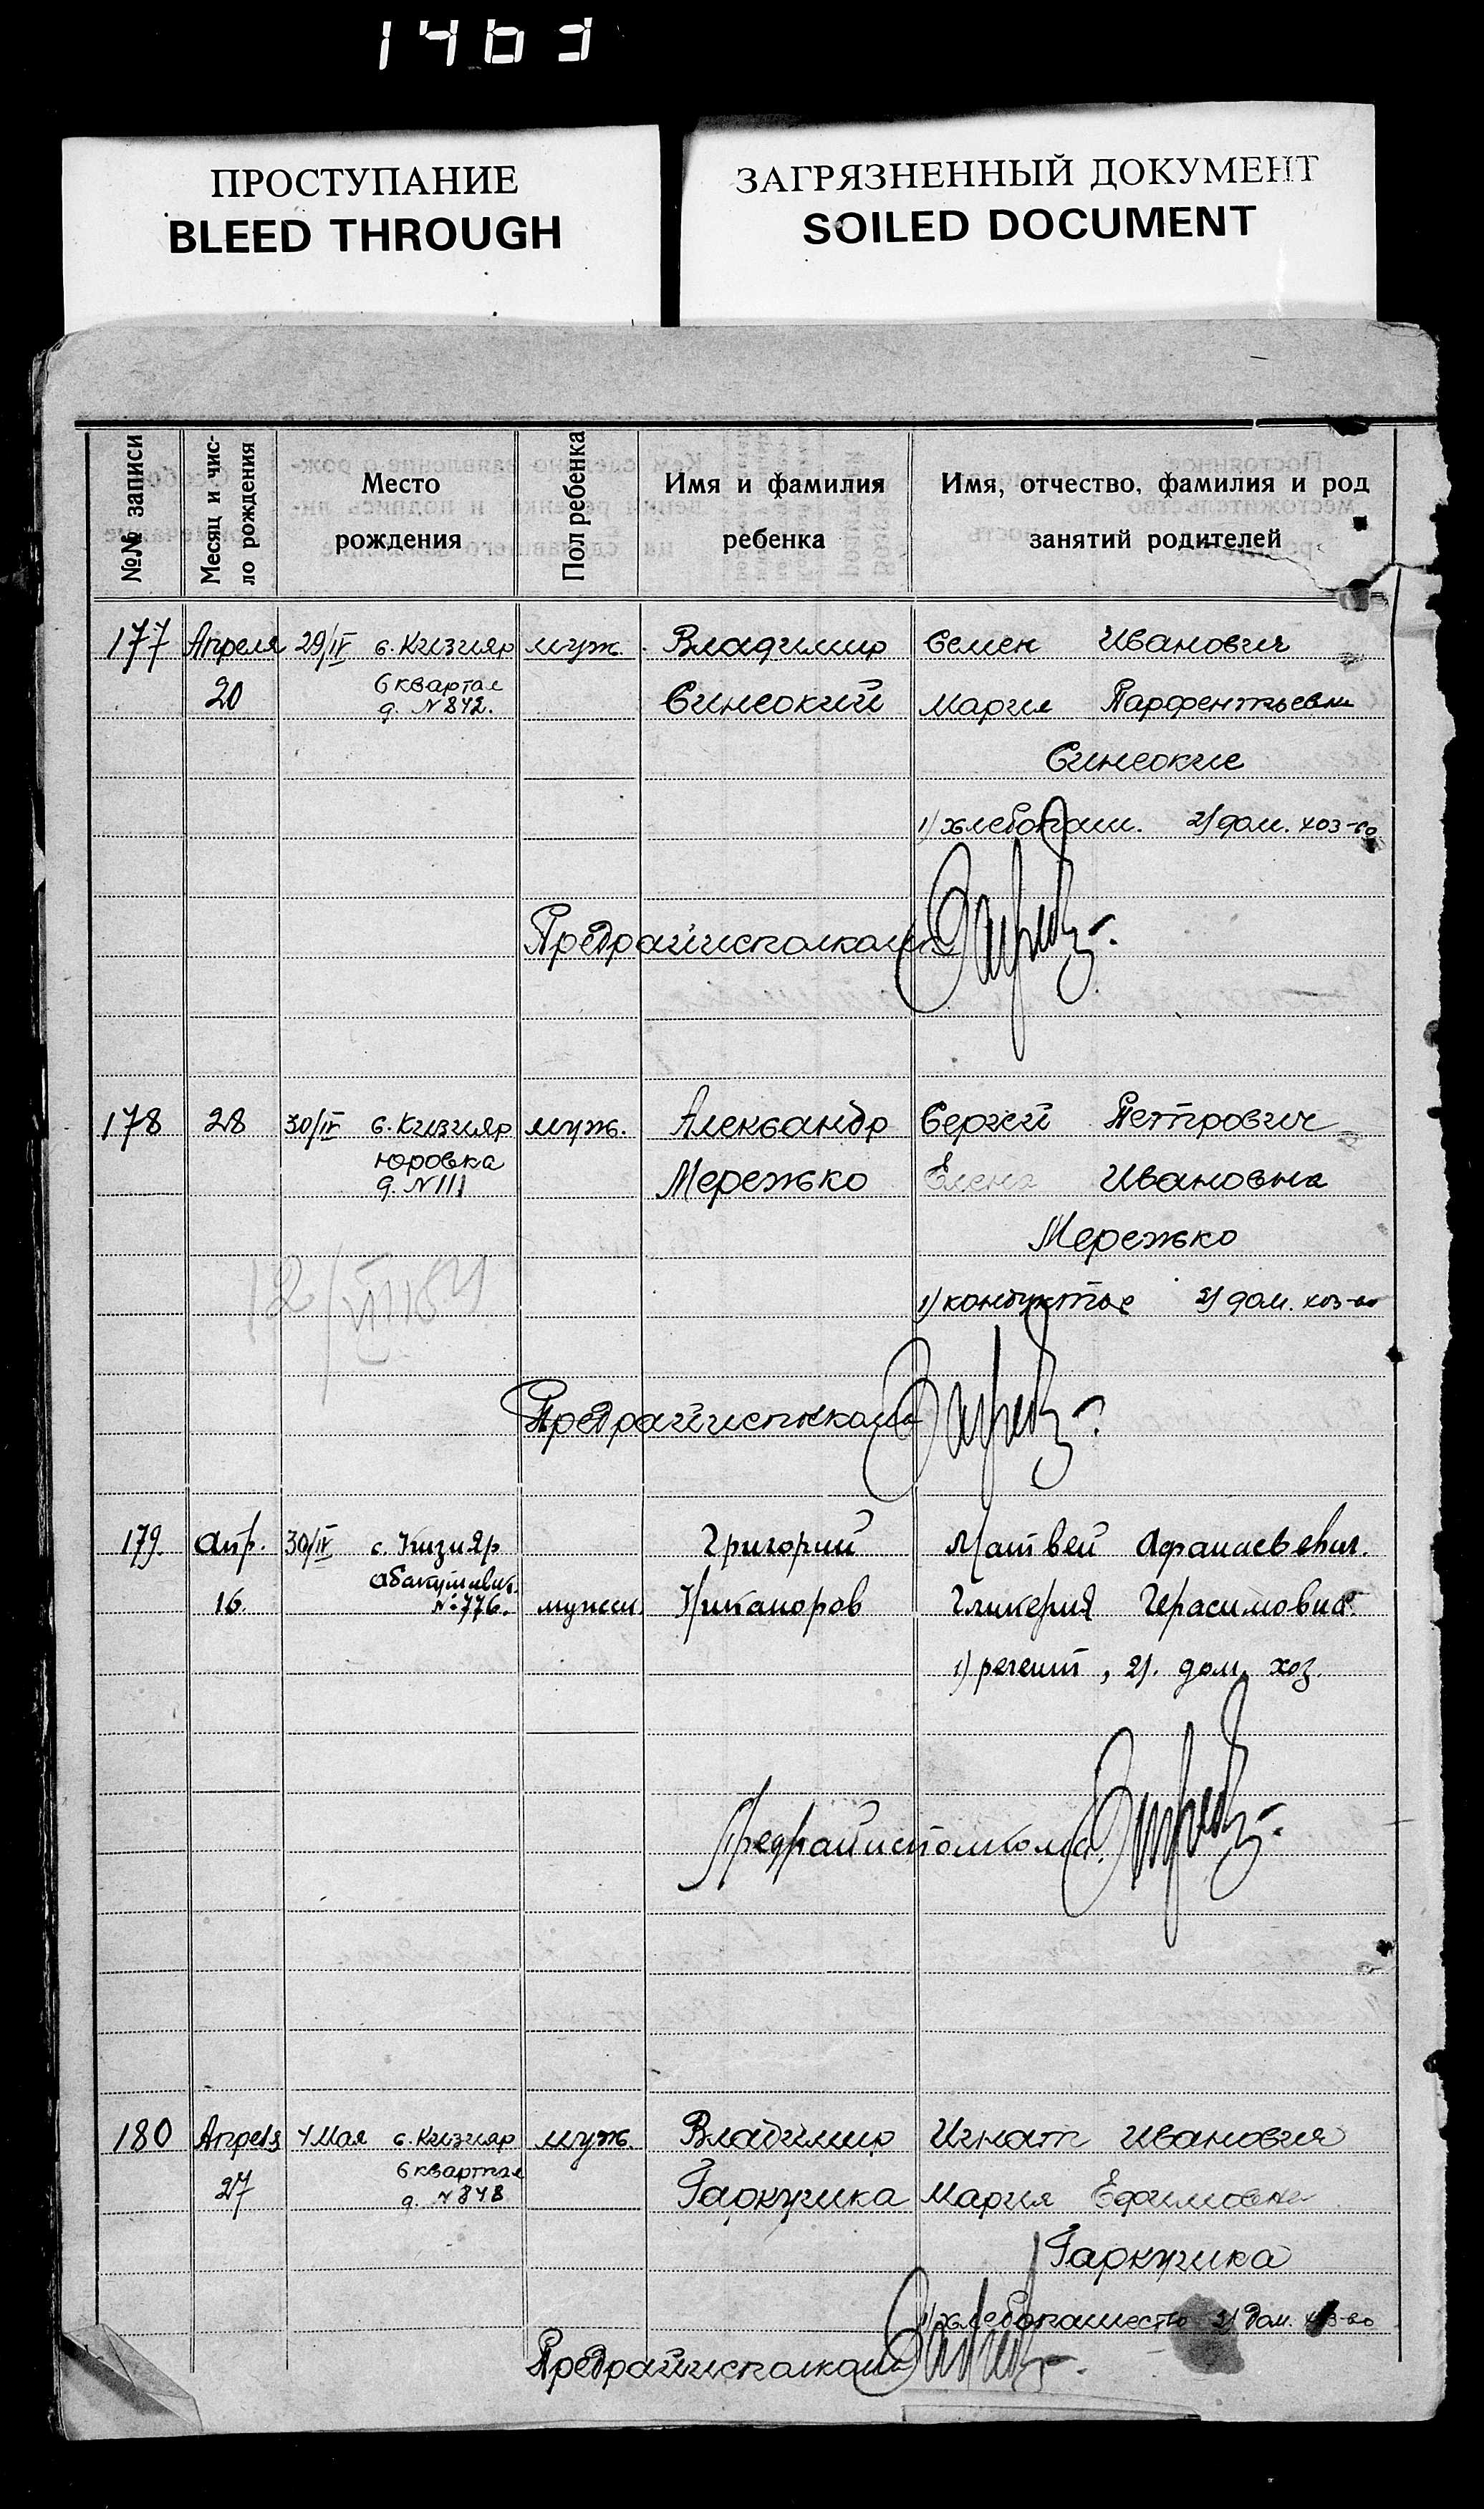 1463
ПРОСТУПАНИЕ
BLEED THROUGH
ЗАГРЯЗНЕННЫЙ ДОКУМЕНТ
SOILED DOCUMENT
№№ записи
Месяц и чис-
ло рождения
Место
рождения
Пол ребенка
Имя и фамилия
ребенка
Имя, отчество, фамилия и род
занятий родителей
177 Апреля 29/IV с. Кизияр муж. Владимир Семен Иванович
20 6 квартал Синеокий Мария Парфентьевна
д. №842.
Синеокие
1) хлебопаш. 2) дом. хоз-во
Предрайисполкома
178 28 30/IV с. Кизияр муж. Александр Сергей Петрович
Юровка Мережко Елена Ивановна
д. №111
Мережко
1) кондуктор 2) дом. хоз-во
Предрайисполкома
179. Апр. 30/IV с. Кизияр Григорий Матвей Афанасьевич.
16. №776. мужск. Никаноров Гликерия Герасимовна.
1) регент, 2). дом. хоз.
Предрайисполкома.
180 Апреля 4 Мая с. Кизияр муж. Владимир Игнат Иванович
27 6 квартал Гаркушка Мария Ефимовна
д. №848
Гаркушка
1) хлебопашество 2) дом. хоз-во
Предрайисполкома